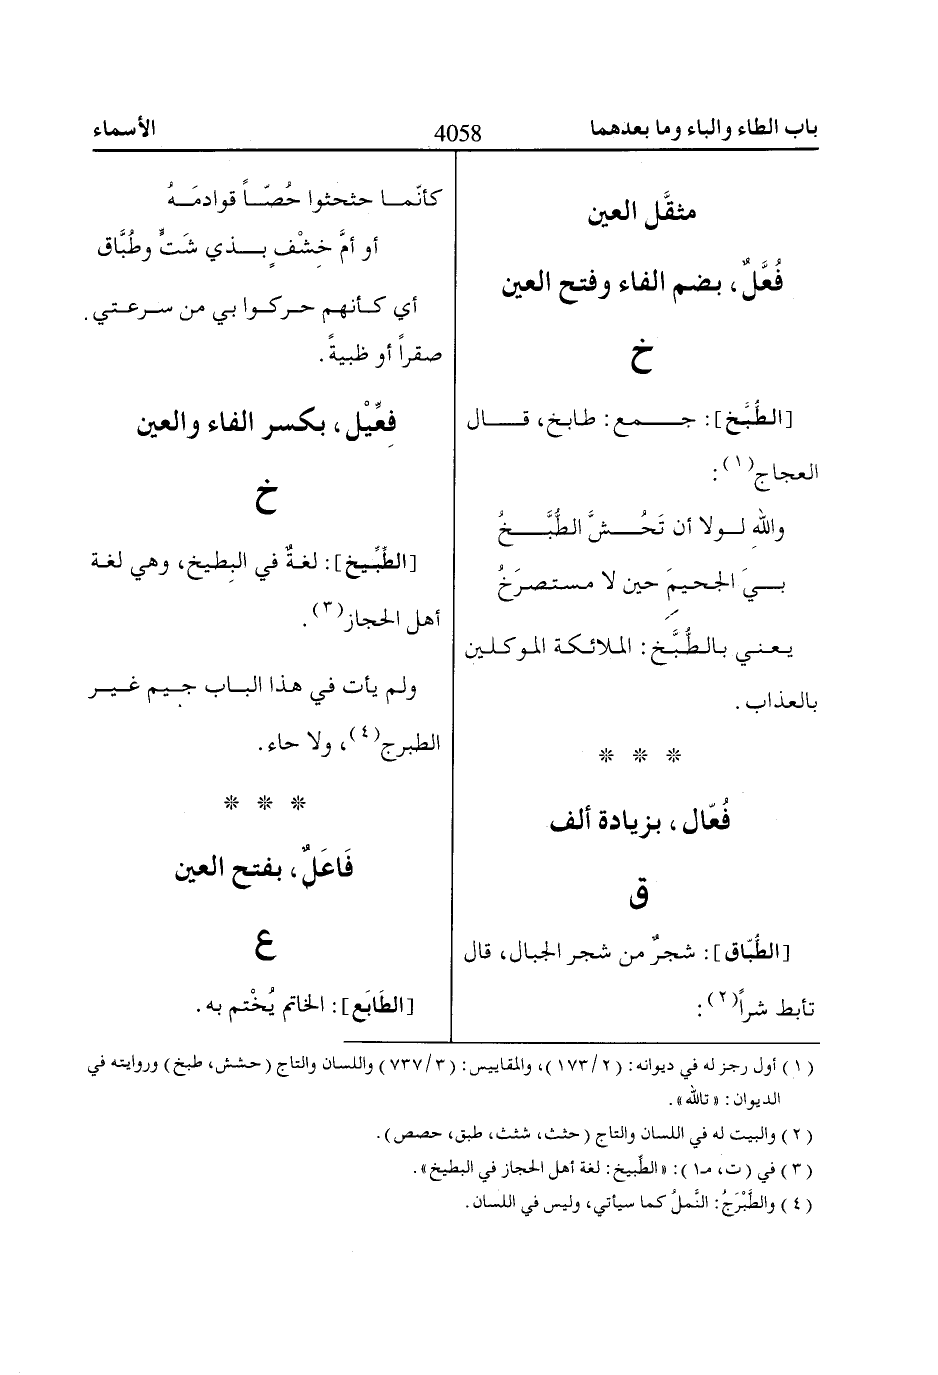 باب الطاء والباء وما بعدهما
4058
الأسماء
مثقَّل العين
فُعَّلٌ، بضم الفاء وفتح العين
خ
[الطُّبَّخ]: جـمـع: طابخ، قـال
العجاج(١):
واللهِ لـولا أن تَحُـشَّ الطُّبَّـخُ
بـيَ الجحيمَ حين لا مستصرَخُ
يـعـني بـالـطُّبَّـخ: الملائكة الموكلين
بالعذاب.
* * *
فُعّال، بزيادة ألف
ق
[الطُّبّاق]: شجرٌ من شجر الجبال، قال
تأبط شراً(٢):
كأنّمـا حثحثوا حُصّـاً قوادمَـهُ
أو أمَّ خِشْفٍ بـذي شَتٍّ وطُبَّاق
أي كـأنهم حـركـوا بي من سـرعـتي
صقراً أو ظبيةً.
فِعِّيْل، بكسر الفاء والعين
خ
[الطِّبِّيخ]: لغةٌ في البطيخ، وهي لغة
أهل الحجاز(٣).
ولم يأت في هذا البـاب جـيـم غـيـر
الطبرج(٤)، ولا حاء.
* * *
فَاعَلٌ، بفتح العين
ع
[الطَابَع]: الخاتم يُخْتم به.
(١) أول رجز له في ديوانه: (٢/١٧٣)، والمقاييس: (٣/٧٣٧) واللسان والتاج (حشش، طبخ) وروايته في
الديوان: «تالله».
(٢) والبيت له في اللسان والتاج (حثث، شثث، طبق، حصص).
(٣) في (ت، م١): «الطِّبيخ: لغة أهل الحجاز في البطيخ».
(٤) والطَّبْرَجُ: النَّملُ كما سيأتي، وليس في اللسان.